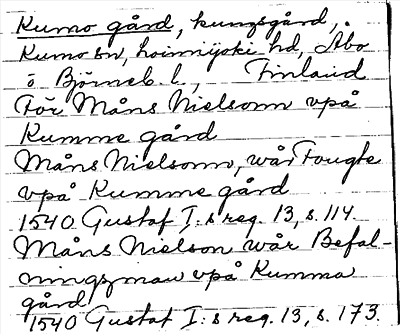 Kumo gård, kungsgård,
Kumo sn, Loimijoki hd, Åbo
o Björneb. l., Finland
För Måns Nielsonn vpå
Kumme gård
Måns Nielsonn, wår Fougte
vpå Kumme gård
1540 Gustaf I:s reg. 13, s. 114.
Måns Nielson wår Befal-
ningzman vpå Kumma
gård
1540 Gustaf I:s reg. 13, s. 173.